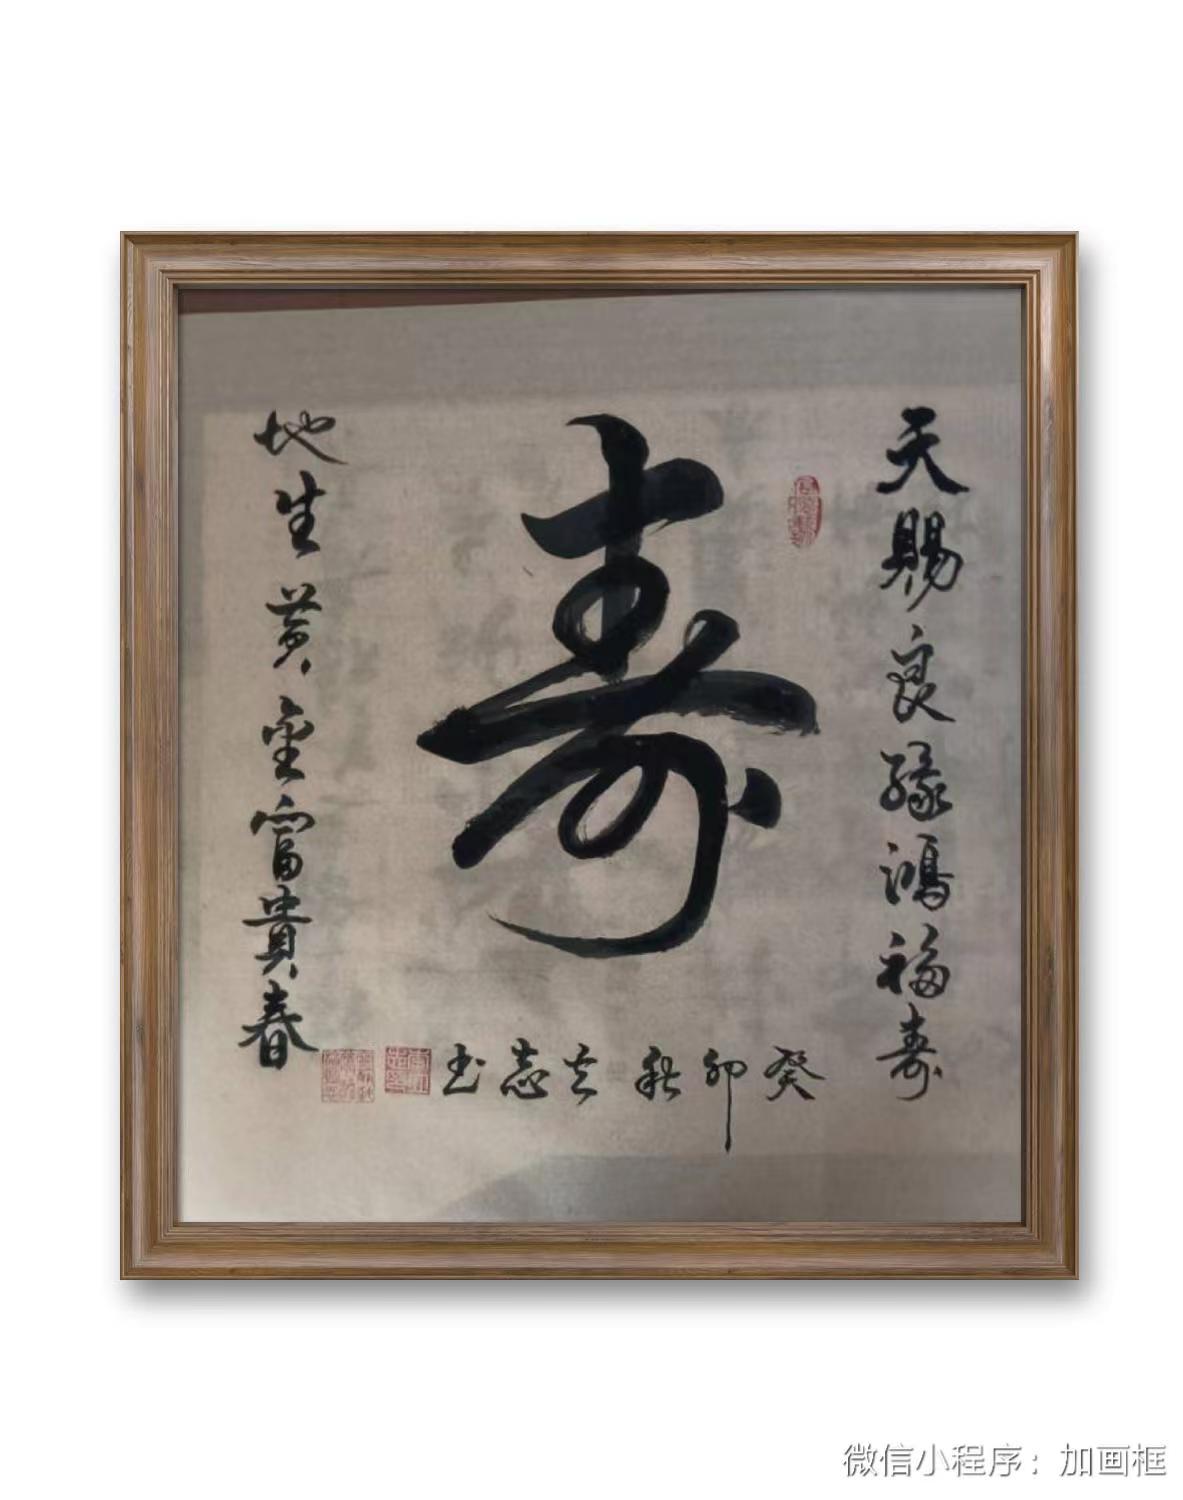 天賜良緣鴻福壽
寿
地生黄金富貴春
癸卯秋 志书
微信小程序：加画框